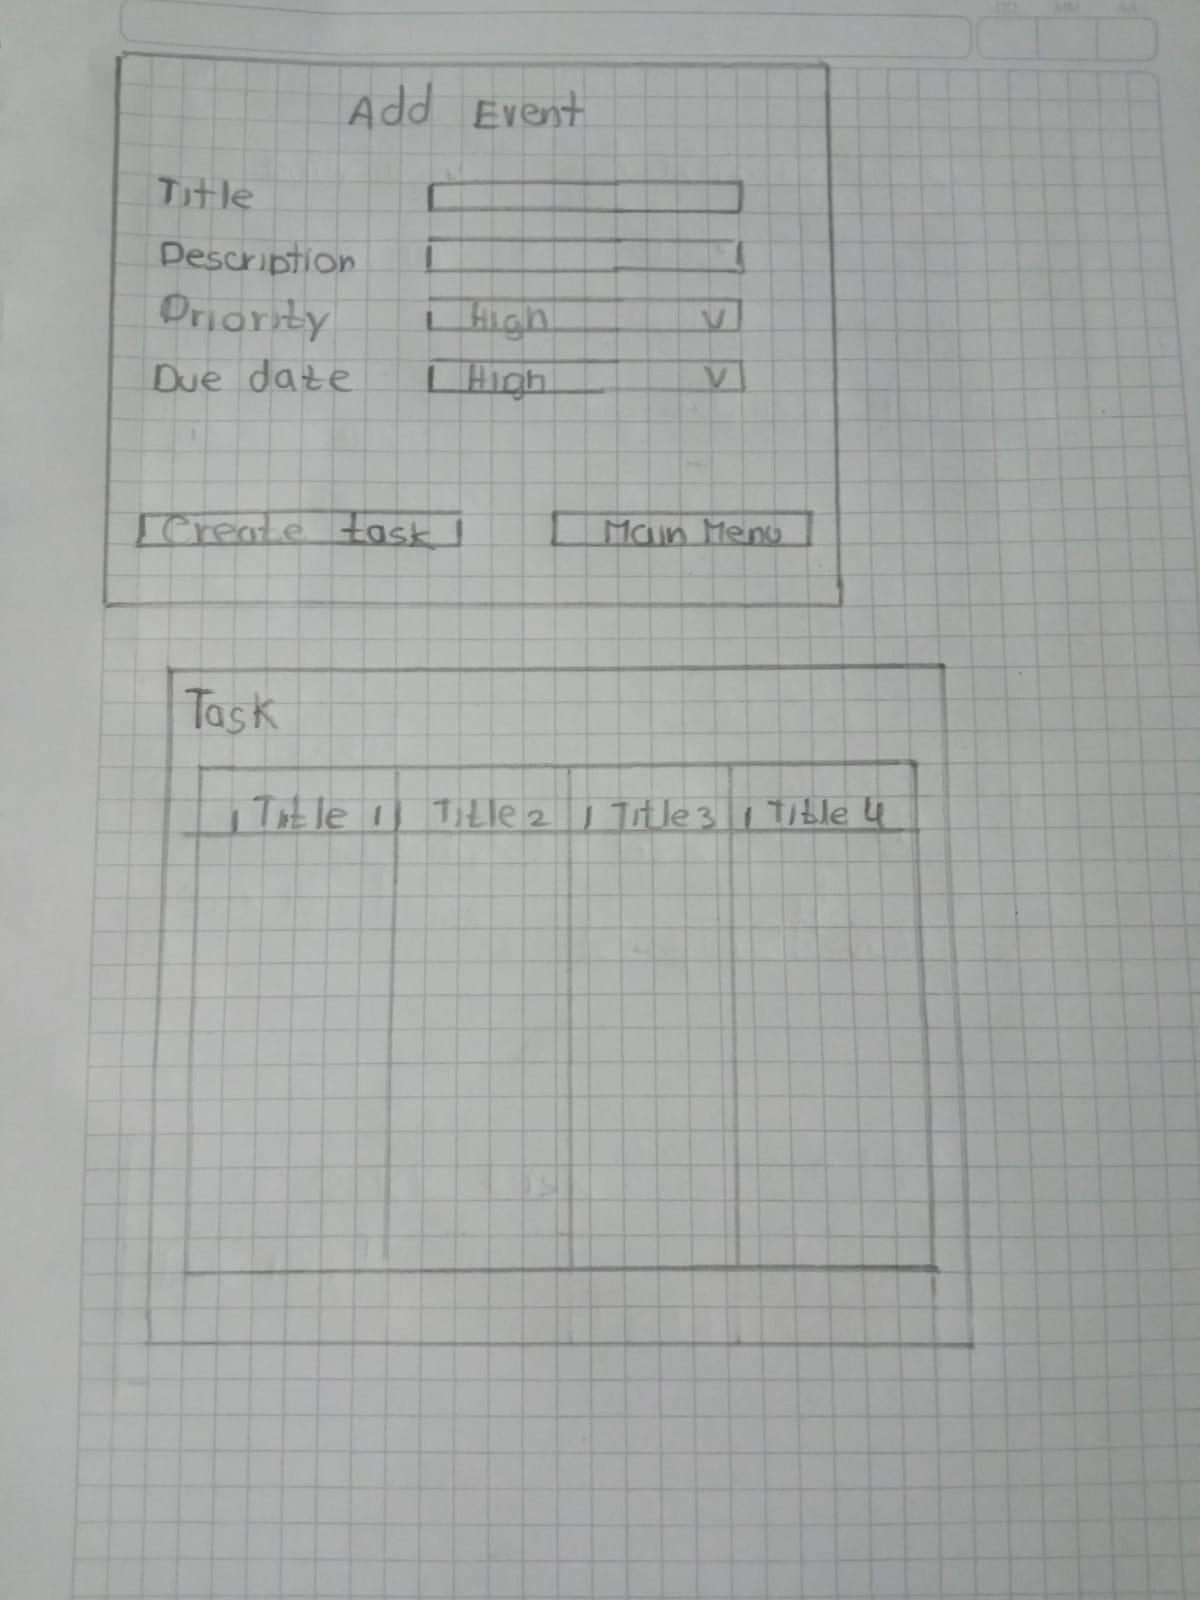 DD MM AA
Add Event
Title
Description
Priority High V
Due date High V
Create task Main Menu
Task
Title 1 Title 2 Title 3 Title 4